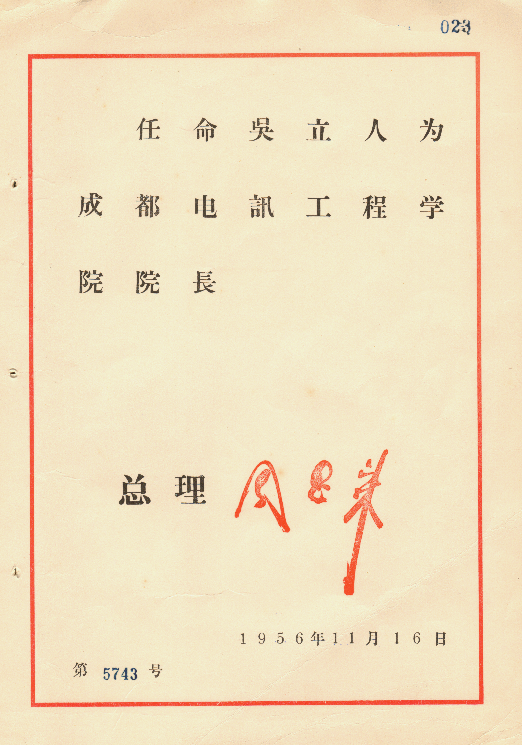 023
任命吳立人为
成都电訊工程学
院院長
总理 周恩来
1956年11月16日
第 5743 号